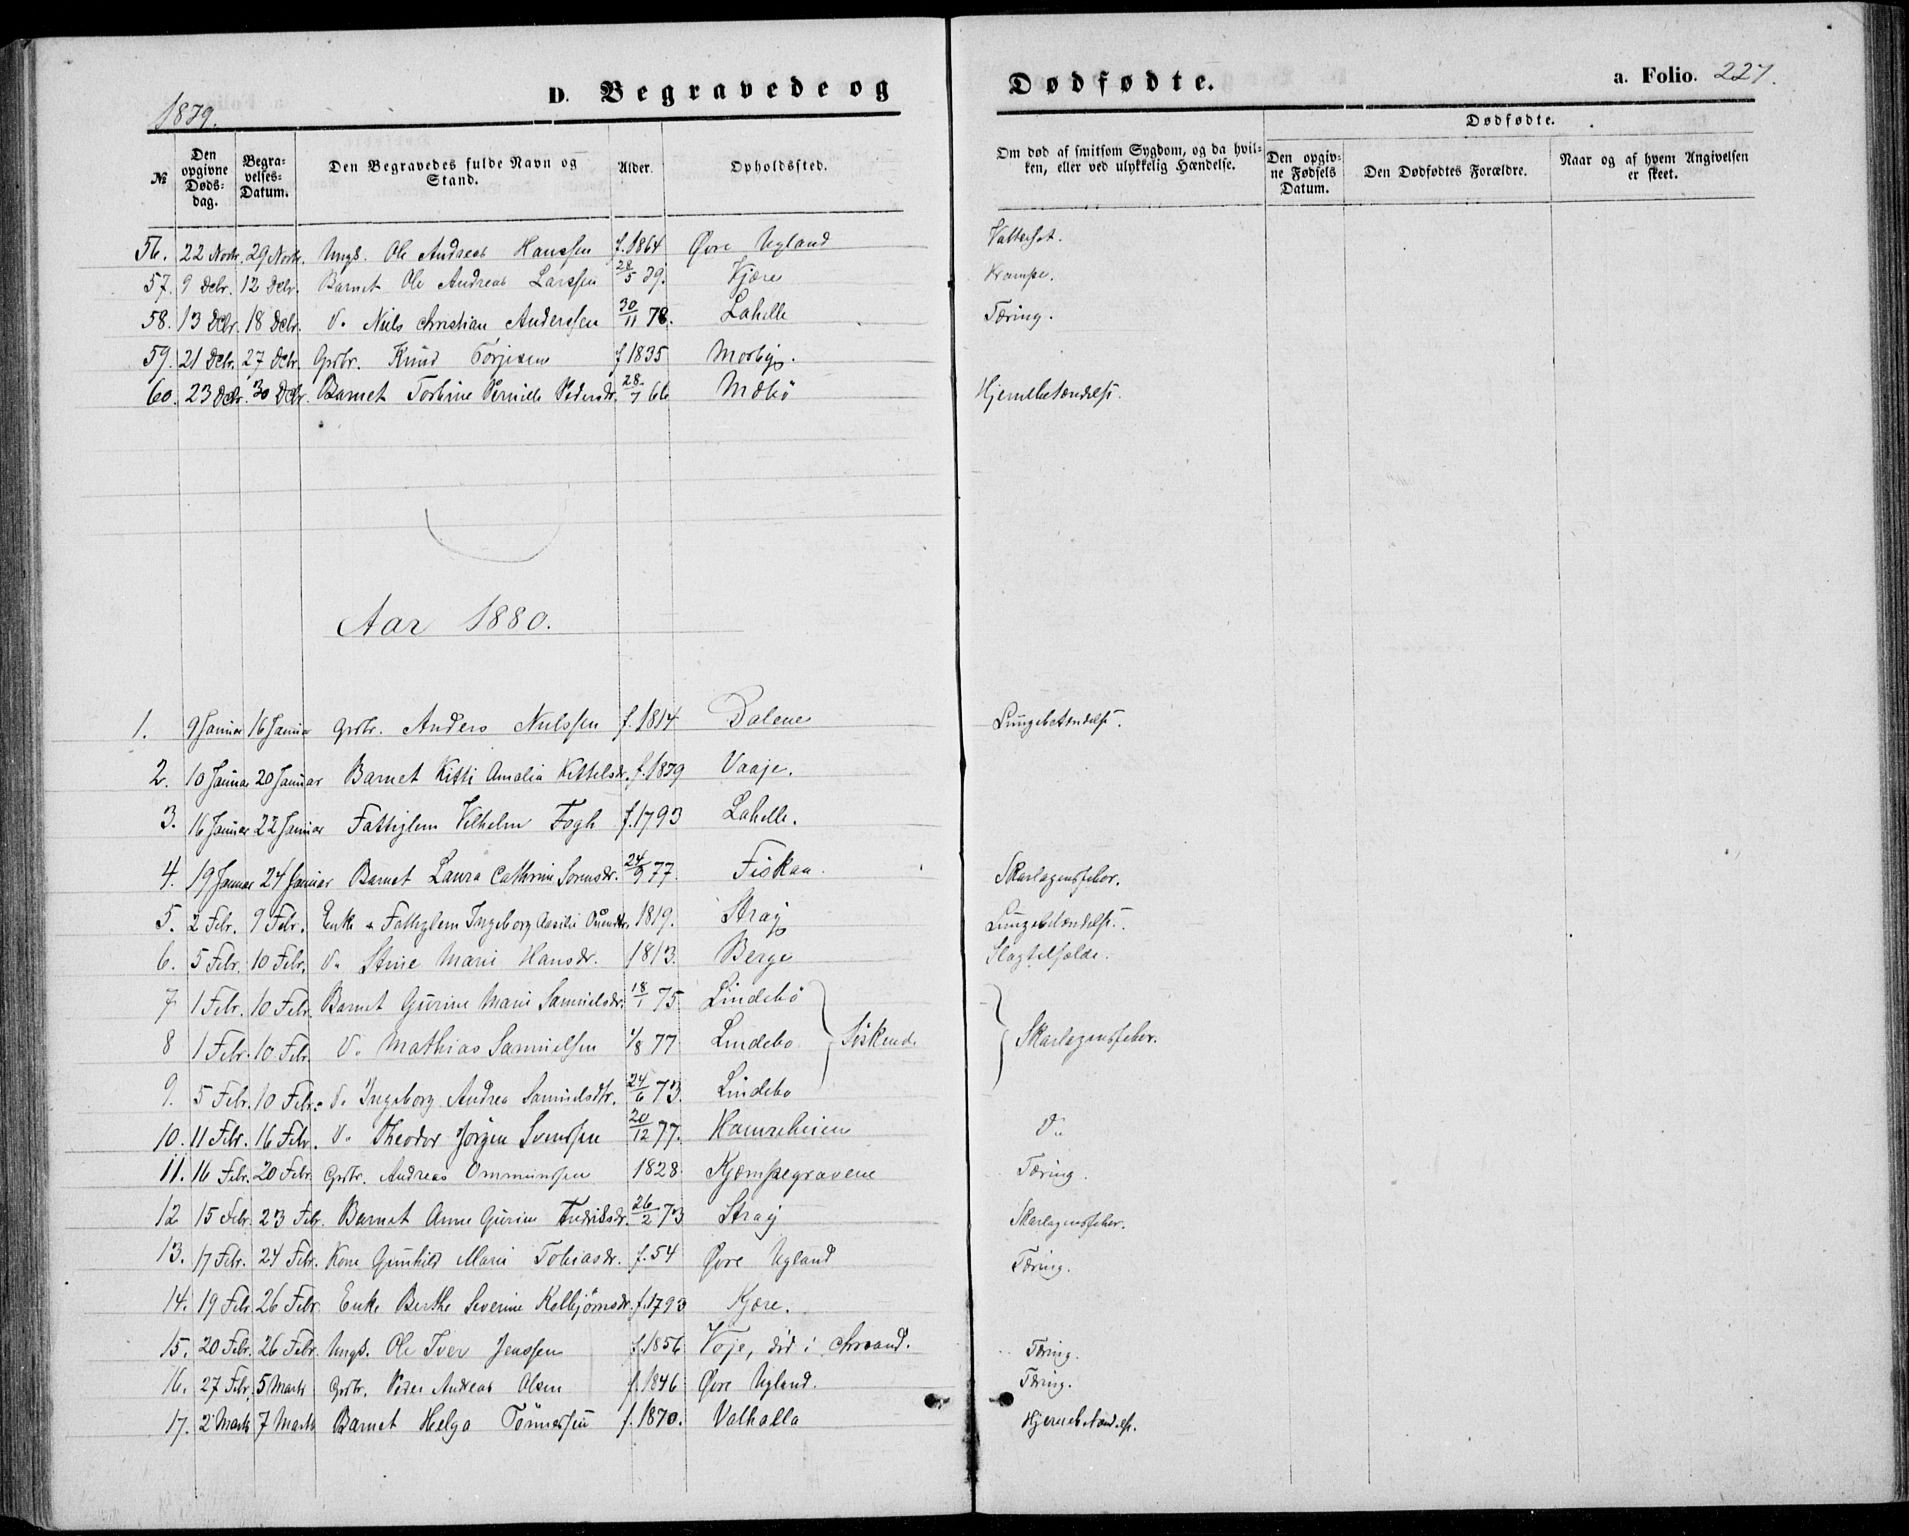 D. Begravede og Dødfødte.
a. Folio. 227.
1879.
№ Den opgivne Dødsdag. Begravelses-Datum. Den Begravedes fulde Navn og Stand. Alder. Opholdssted. Om død af smitsom Sygdom, og da hvilken, eller ved ulykkelig Hændelse. Dødfødte. Den opgivne Fødsels Datum. Den Dødfødtes Forældre. Naar og af hvem Angivelsen er skeet.
56. 22 Novbr. 29 Novbr. Ungk. Ole Andreas Hanssen f. 1864 Øvre Ugland Vattersot.
57. 9 Debr. 12 Debr. Barnet Ole Andreas Larssen 28/5 79. Kjære Krampe.
58. 13 Debr. 18 Debr. D. Niels Christian Anderssen 30/11 78. Lahelle Tæring.
59. 21 Debr. 27 Debr. Grdbr. Knud Törjesen f 1835 Mosby.
60. 23 Debr. 30 Debr. Barnet Torbine Pernille Pedersdr. 28/7 66 Mæbö Hjernebetændelse.
Aar 1880.
1. 9 Januar 16 Januar Grdbr. Anders Nielssen f. 1814 Dalene Lungebetændelse.
2. 10 Januar 20 Januar Barnet Kitti Amalia Kittelsdr. f. 1879 Vaaje.
3. 16 Januar 22 Januar Fattiglem Vilhelm Fogh f. 1793 Lahelle.
4. 19 Januar 24 Januar Barnet Laura Cathrine Sörensdr. 24/9 77. Fiskaa. Skarlagensfeber.
5. 2 Febr. 9 Febr. Enke & Fattiglem Ingeborg 1819. Stray Lungebetændelse.
6. 5 Febr. 10 Febr. D. Stine Marie Hansdr. 1813. Berge Slagtilfælde.
7 1 Febr. 10 Febr. Barnet Gurine Marie Samuelsdr. 18/1 75. Lindebö
8 1 Febr. 10 Febr. D. Mathias Samuelsen 1/8 77 Lindebö Söskende Skarlagensfeber.
9. 5 Febr. 10 Febr. D. Ingeborg Andrea Samuelsdtr. 24/6 73. Lindebö
10. 11 Febr. 16 Febr. D. Theodor Jörgen Svenssen 20/12 77. Hamreheien D.
11. 16 Febr. 20 Febr. Grdbr. Andreas Ommundsen 1828. Kjempegravene Tæring.
12 15 Febr. 23 Febr. Barnet Anne Gurine Fredriksdr. 26/2 73 Stray Skarlagensfeber.
13. 17 Febr. 24 Febr. Kone Gunhild Marie Tobiasdr. f. 54 Øvre Ugland Tæring.
14. 19 Febr. 26 Febr. Enke Berthe Severine Kelbjörnsdr. f. 1793 Kjære.
15. 20 Febr. 26 Febr. Ungk. Ole Iver Jenssen f. 1856 Voje, död i Chrsand. Tæring.
16. 27 Febr. 5 Marts Grdbr. Peder Andreas Olsen f. 1846 Øvre Ugland. Tæring.
17. 2 Marts 7 Marts Barnet Helga Tönnessen f. 1870. Valhalla Hjernebetændelse.